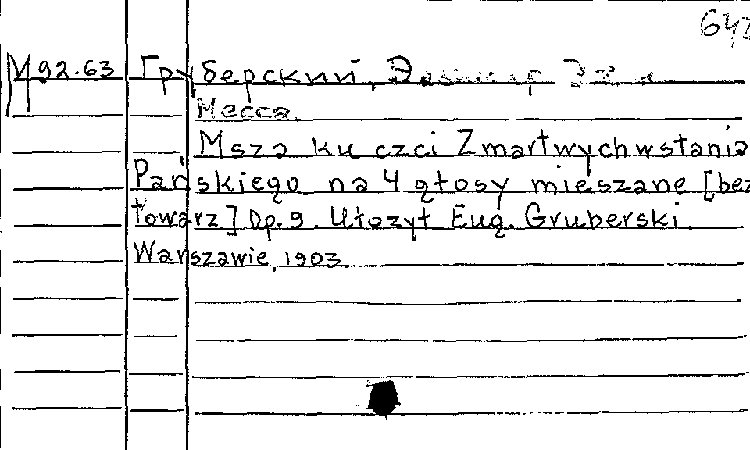 М92-63 Груберский,
Месса.
Msza ku czci Zmartwychwstania
Pańskiego na 4 głosy mieszane [bez
towarz] Op. 9. Ułożył Eug. Gruberski.
Warszawie, 1903.